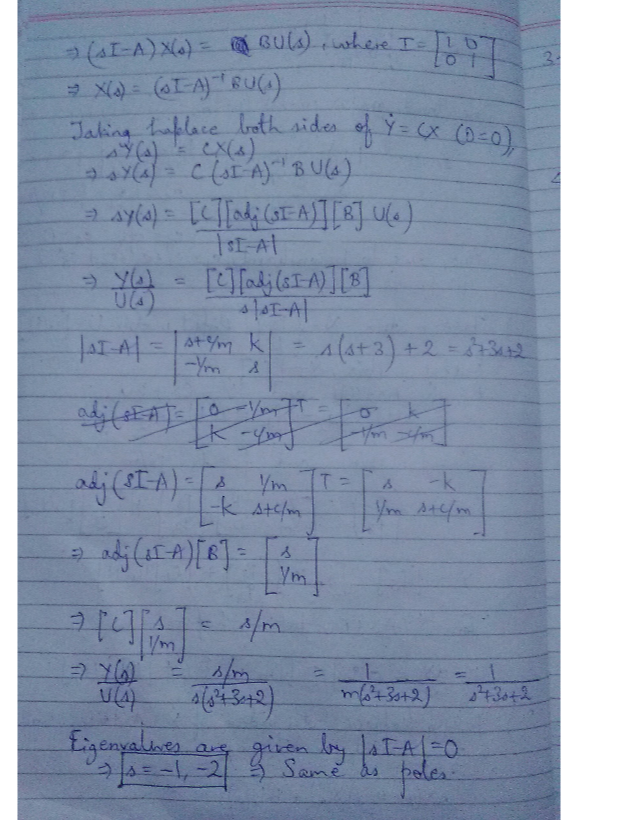 ⇒ (sI-A) X(s) = BU(s), where I = [1 0; 0 1]
3.
⇒ X(s) = (sI-A)⁻¹ BU(s)
Taking Laplace both sides of Ẏ = CX (D=0),
sY(s) = CX(s)
⇒ sY(s) = C (sI-A)⁻¹ B U(s)
⇒ sY(s) = [C][adj(sI-A)][B] U(s) / |sI-A|
⇒ Y(s)/U(s) = [C][adj(sI-A)][B] / s|sI-A|
|sI-A| = |s+c/m k; -1/m s| = s(s+3)+2 = s²+3s+2
adj(sI-A) = [0 -1/m; k -c/m]T = [0 k; -1/m -c/m]
adj(sI-A) = [s 1/m; -k s+c/m]T = [s -k; 1/m s+c/m]
⇒ adj(sI-A)[B] = [s; 1/m]
⇒ [C][s; 1/m] = s/m
⇒ Y(s)/U(s) = s/m / s(s²+3s+2) = 1 / m(s²+3s+2) = 1 / s²+3s+2
Eigenvalues are given by |sI-A| = 0
⇒ s = -1, -2 ⇒ Same as poles.